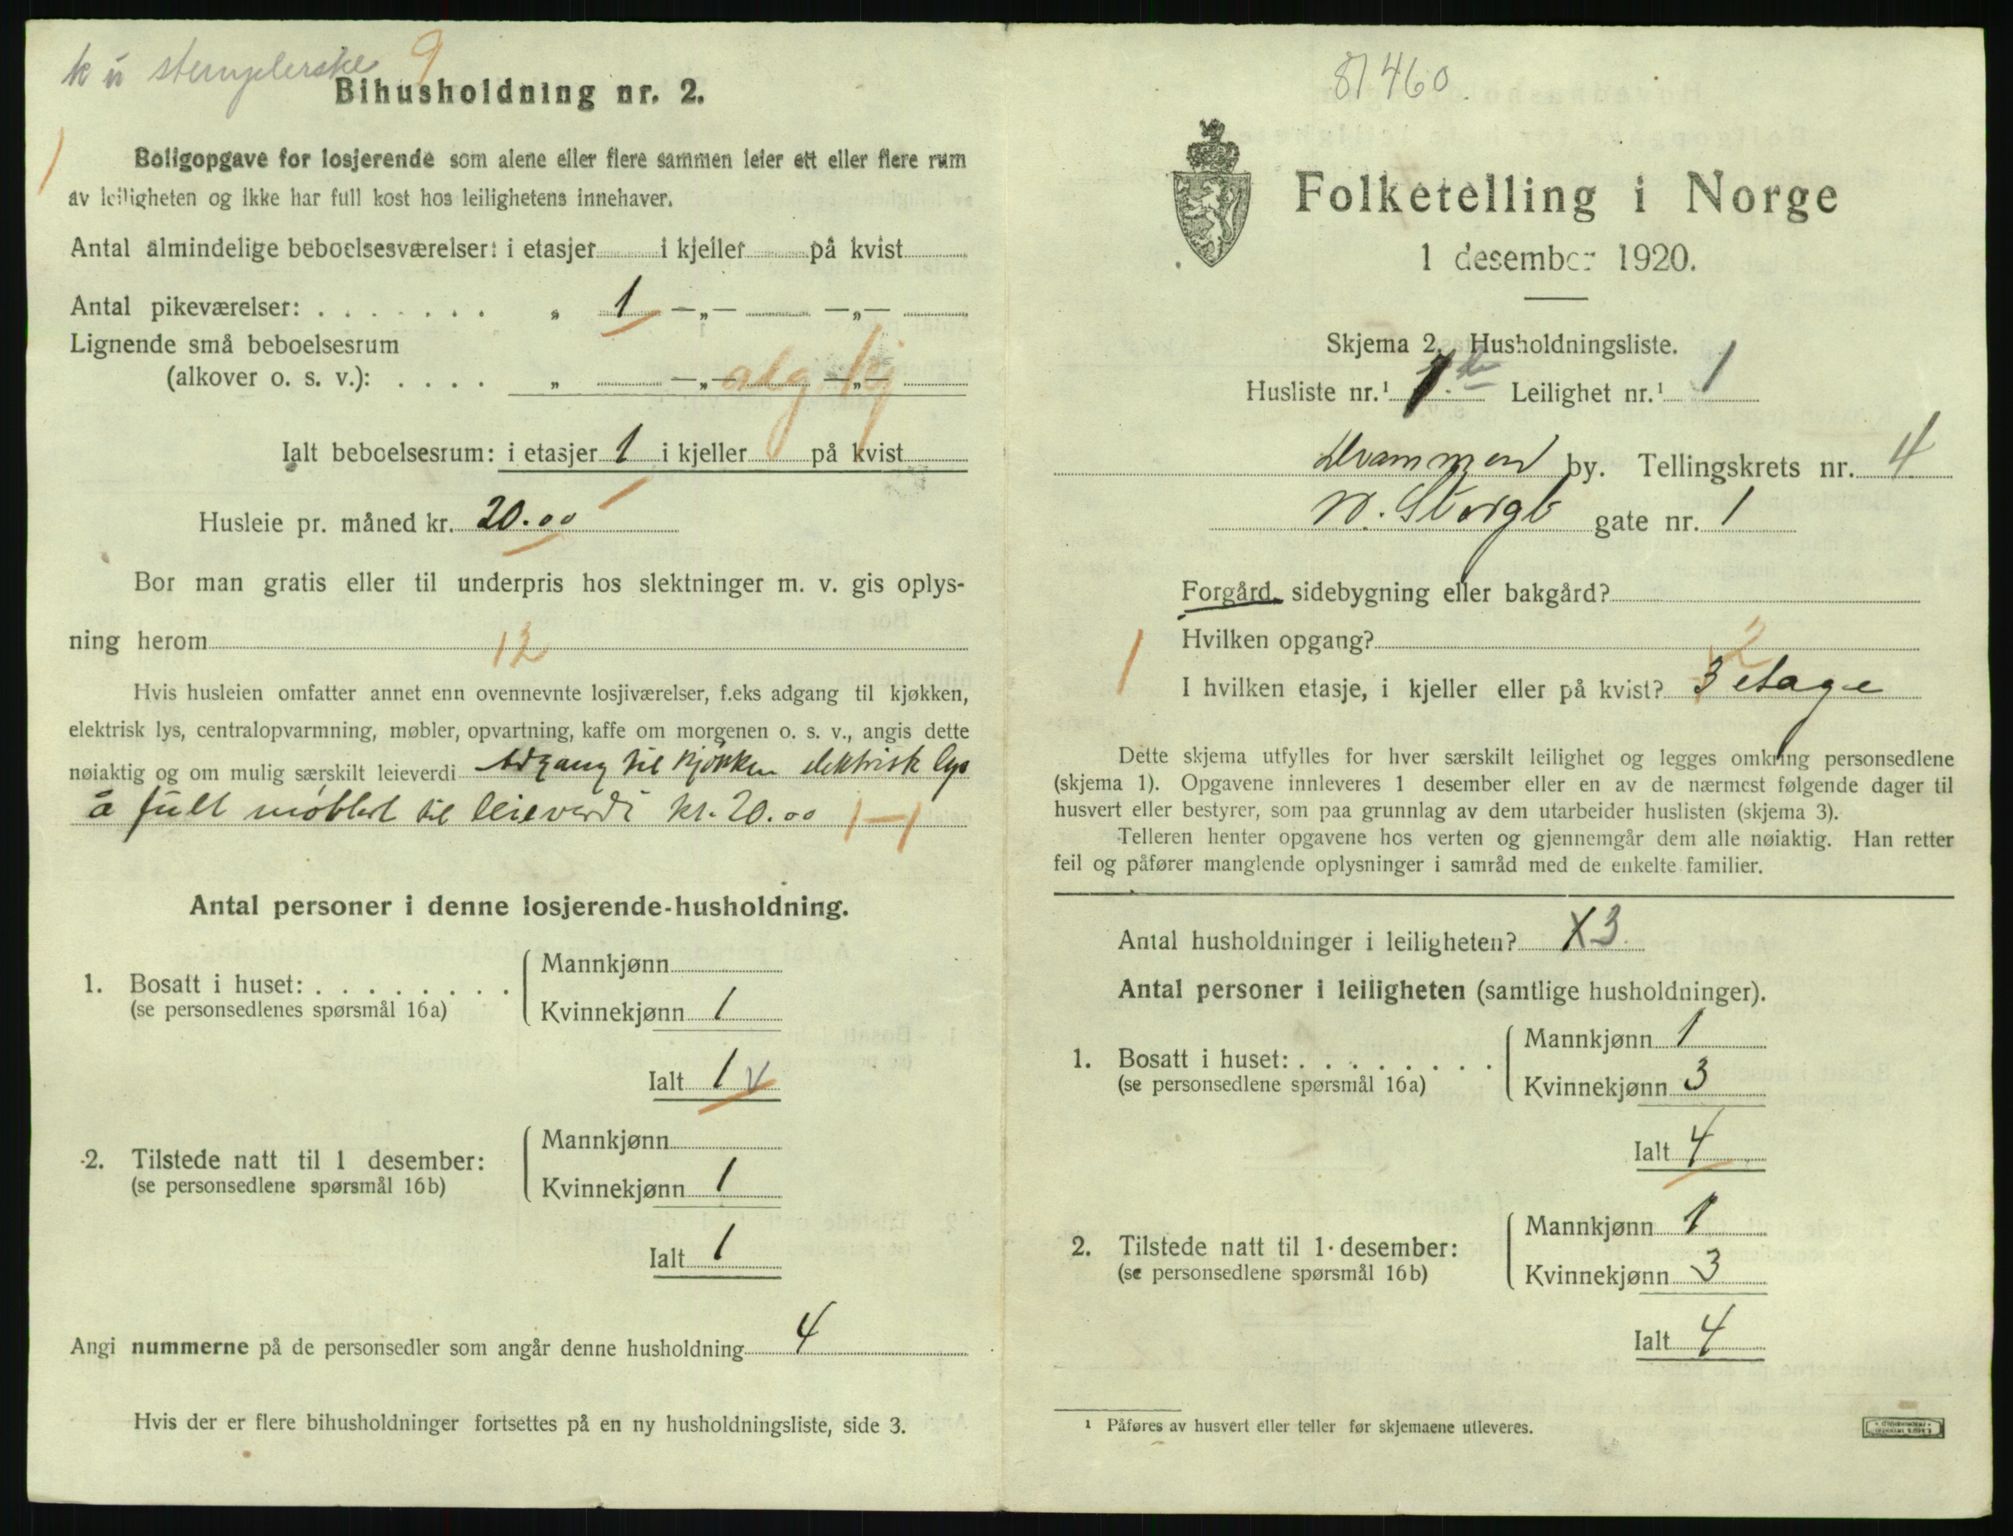 k ú stemplerske 9
Bihusholdning nr. 2.
1
Boligopgave for losjerende som alene eller flere sammen leier ett eller flere rum
av leiligheten og ikke har full kost hos leilighetens innehaver.
Antal almindelige beboelsesværelser: i etasjer i kjeller på kvist
Antal pikeværelser: . . . . . . . „ 1 —„— —„—
Lignende små beboelsesrum
(alkover o. s. v.): . . . . „ —„— —„—
alg. kj
Ialt beboelsesrum: i etasjer 1 i kjeller på kvist
Husleie pr. måned kr. 20.00
Bor man gratis eller til underpris hos slektninger m. v. gis oplys-
ning herom
12
Hvis husleien omfatter annet enn ovennevnte losjiværelser, f.eks adgang til kjøkken,
elektrisk lys, centralopvarmning, møbler, opvartning, kaffe om morgenen o. s. v., angis dette
nøiaktig og om mulig særskilt leieverdi Adgang til kjøkken elektrisk lys
å fult møblert til leieverdi kr. 20.00 1—1
Antal personer i denne losjerende-husholdning.
1. Bosatt i huset: . . . . . . . .
(se personsedlenes spørsmål 16a)
Mannkjønn
Kvinnekjønn 1
Ialt 1
2. Tilstede natt til 1 desember:
(se personsedlene spørsmål 16b)
Mannkjønn
Kvinnekjønn 1
Ialt 1
Angi nummerne på de personsedler som angår denne husholdning 4
Hvis der er flere bihusholdninger fortsettes på en ny husholdningsliste, side 3.
81460
Folketelling i Norge
1 desember 1920.
Skjema 2. Husholdningsliste.
Husliste nr.¹ 1 Leilighet nr.¹ 1
Drammen by. Tellingskrets nr. 4
N. Storgt gate nr. 1
Forgård, sidebygning eller bakgård?
1
Hvilken opgang?
2
I hvilken etasje, i kjeller eller på kvist? 3 etage
Dette skjema utfylles for hver særskilt leilighet og legges omkring personsedlene
(skjema 1). Opgavene innleveres 1 desember eller en av de nærmest følgende dager til
husvert eller bestyrer, som paa grunnlag av dem utarbeider huslisten (skjema 3).
Telleren henter opgavene hos verten og gjennemgår dem alle nøiaktig. Han retter
feil og påfører manglende oplysninger i samråd med de enkelte familier.
Antal husholdninger i leiligheten? X3
Antal personer i leiligheten (samtlige husholdninger).
1. Bosatt i huset: . . . . . . . .
(se personsedlene spørsmål 16a)
Mannkjønn 1
Kvinnekjønn 3
Ialt 4
2. Tilstede natt til 1 desember:
(se personsedlene spørsmål 16b)
Mannkjønn 1
Kvinnekjønn 3
Ialt 4
¹ Påføres av husvert eller teller før skjemaene utleveres.